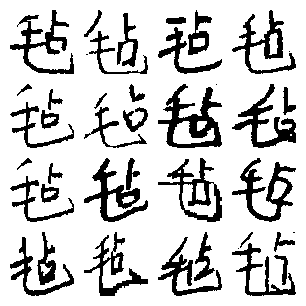 毡毡毡毡
毡毡毡毡
毡毡毡毡
毡毡毡毡